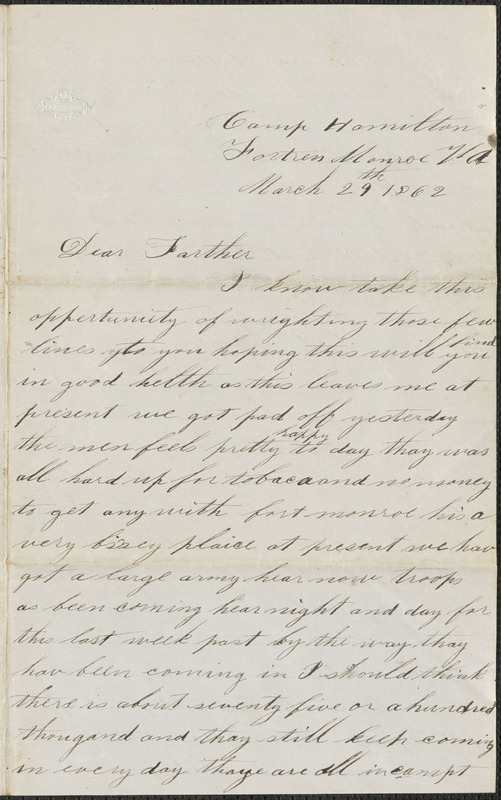 Camp Hamilton
Fortress Monroe Va
March 29th 1862
Dear Farther
I know take this
oppertunity of wrighting those few
lines to you hoping this will find you
in good helth as this leaves me at
present we got pad off yesterday
the men feels pretty happy to day thay was
all hard up for tobaca and no money
to get any with fort monroe his a
very bizey plaice at present we hav
got a large army hear now troops
as been coming hear night and day for
this last week past by the way thay
hav been coming in I should think
there is about seventy five or a hundred
thougand and thay still keep coming
in every day thaye are all incampt